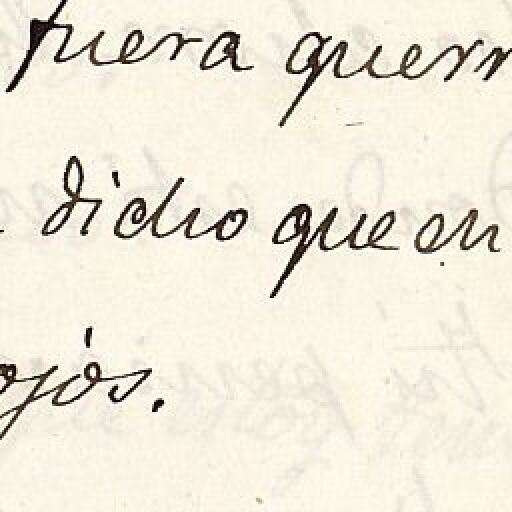 fuera querr
dicho que en
ojos.